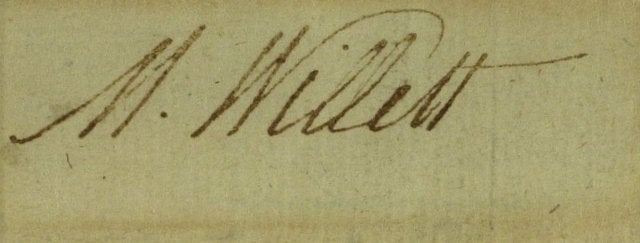 M. Willett